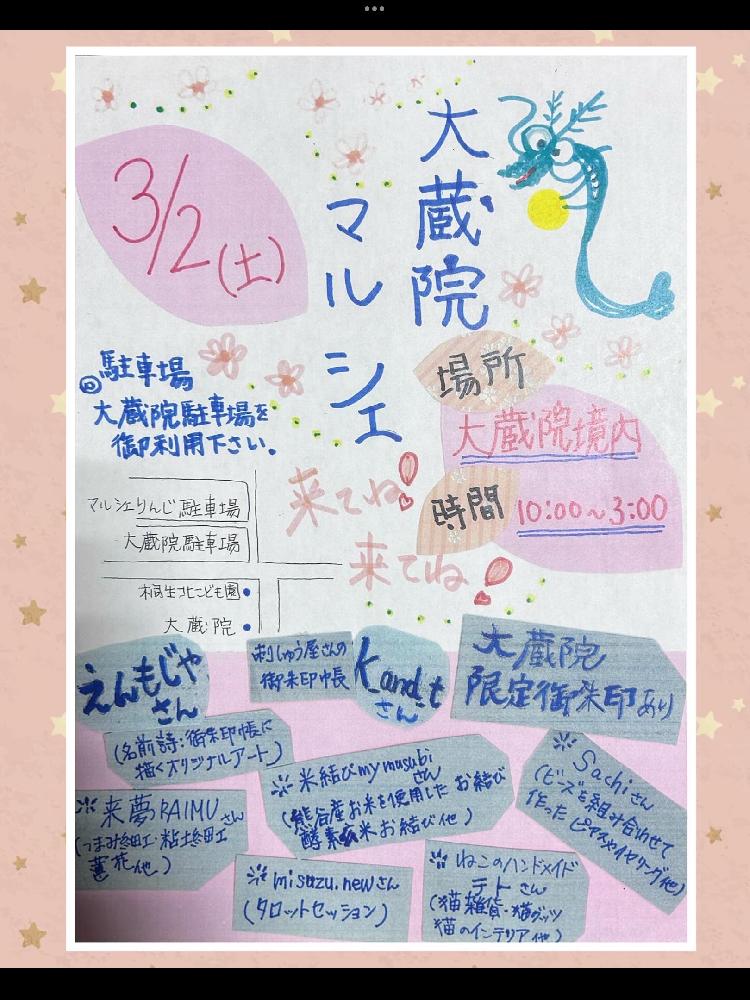 大蔵院
マルシェ
3/2(土)
場所
大蔵院境内
時間 10:00~3:00
◎駐車場
大蔵院駐車場を
御利用下さい。
来てね!
来てね!
マルシェりんじ駐車場
大蔵院駐車場
桐生北こども園
大蔵院
えんもじゃ
さん
(名前詩・御朱印帳に
描くオリジナルアート)
刺しゅう屋さんの
御朱印帳
K_and_t
さん
大蔵院
限定御朱印あり
来夢RAIMUさん
(つまみ細工・粘土細工
蓮花他)
米結びmymusubi
さん
(熊谷産お米を使用したお結び
酵素玄米お結び他)
Sachiさん
(ビーズを組み合わせて
作ったピアスやイヤリング他)
misuzu.newさん
(タロットセッション)
ねこのハンドメイド
テトさん
(猫雑貨・猫グッツ
猫のインテリア他)